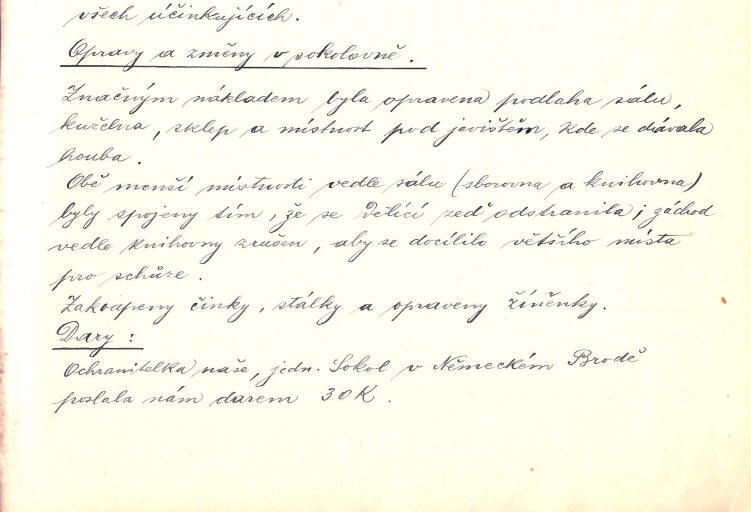 všech účinkujících.
Opravy a změny v sokolovně.
Značným nákladem byla opravena podlaha sálu,
kuželna, sklep a místnost pod jevištěm, kde se dávala
houba.
Obě menší místnosti vedle sálu (sborovna a knihovna)
byly spojeny tím, že se dělící zeď odstranila; záchod
vedle knihovny zrušen, aby se docílilo většího místa
pro schůze.
Zakoupeny činky, stálky a opraveny žíněnky.
Dary:
Ochranitelka naše, jedn. Sokol v Německém Brodě
poslala nám darem 30K.